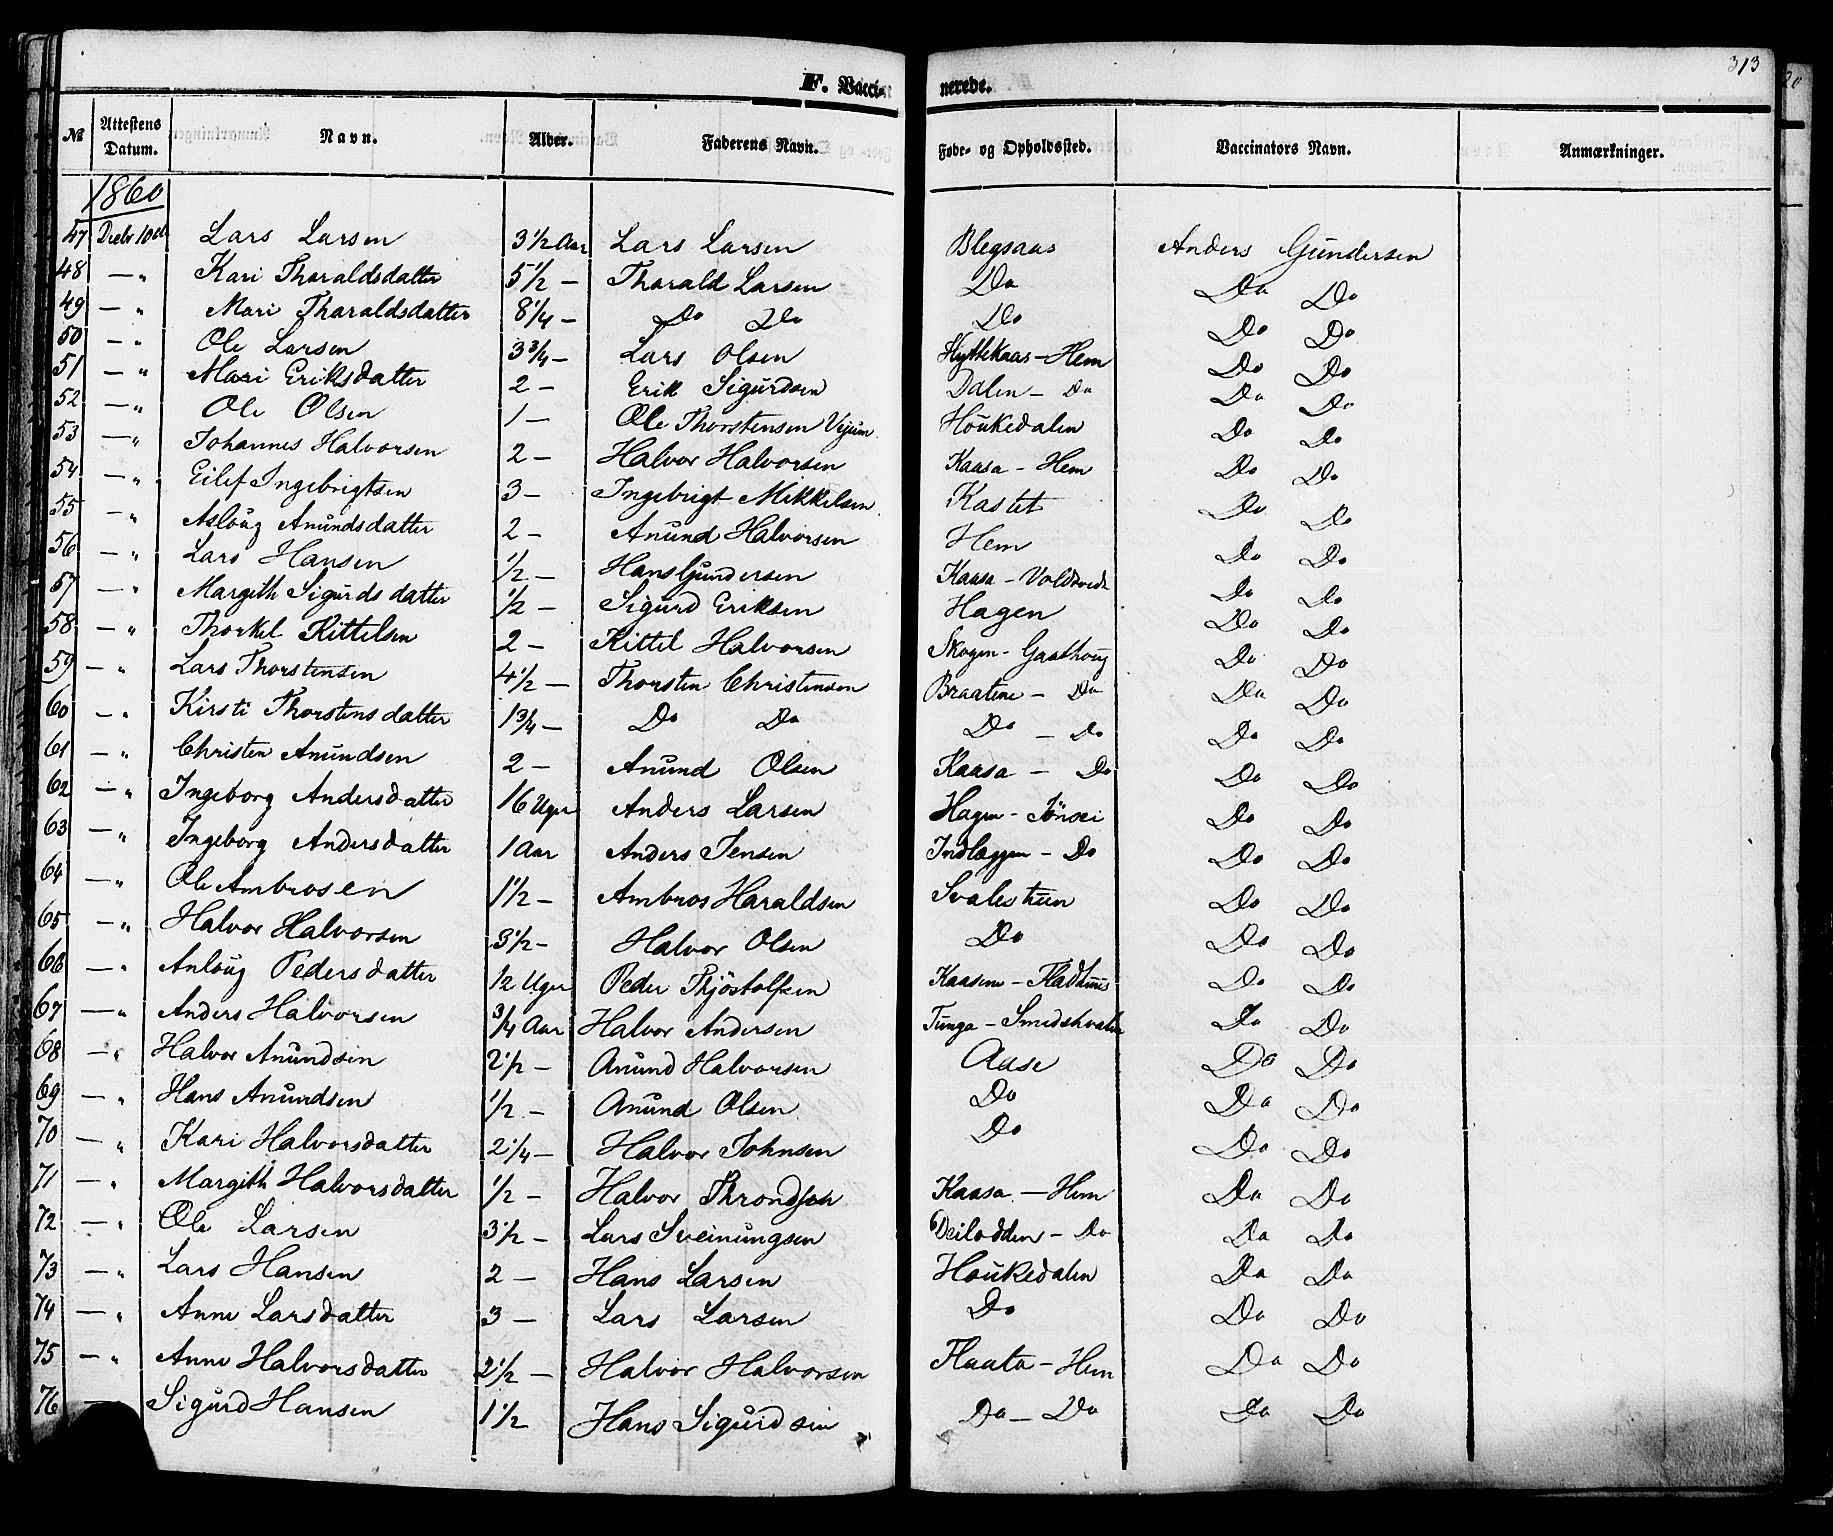 313
F. Vaccinerede.
№ Attestens Datum. Navn. Alder. Faderens Navn. Føde- og Opholdssted. Vaccinators Navn. Anmærkninger.
1860
47 Decbr 10de Lars Larsen 3 1/2 Aar Lars Larsen Blegsaas Anders Gundersen
48 — " Kari Tharaldsdatter 5 1/2 — Tharald Larsen Do Do Do
49 — " Mari Tharaldsdatter 8 1/4 — Do Do Do Do Do
50 — " Ole Larsen 3 3/4 — Lars Olsen Hyttekaas — Hem Do Do
51 — " Mari Eriksdatter 2 — Erik Sigurdsen Dalen — Do Do Do
52 — " Ole Olsen 1 — Ole Thorstensen Vejum Houkedalen Do Do
53 — " Johannes Halvorsen 2 — Halvor Halvorsen Kaasa — Hem Do Do
54 — " Eilef Ingebrigtsen 3 — Ingebrigt Mikkelsen Kastet Do Do
55 — " Aslaug Anundsdatter 2 — Anund Halvorsen Hem Do Do
56 — " Lars Hansen 1/2 — Hans Gundersen Kaasa — Do Do
57 — " Margith Sigurdsdatter 1/2 — Sigurd Eriksen Hagen Do Do
58 — " Thorkel Kittelsen 2 — Kittel Halvorsen Skogen — Do Do
59 — " Lars Thorstensen 4 1/2 — Thorsten Christensen Braatene — Do Do Do
60 — " Kirsti Thorstensdatter 1 3/4 — Do Do Do — Do Do Do
61 — " Christen Anundsen 2 — Anund Olsen Kaasa — Do Do Do
62 — " Ingeborg Andersdatter 16 Uger Anders Larsen Hagen — Jönsei Do Do
63 — " Ingeborg Andersdatter 1 Aar Anders Jensen Indlæggen — Do Do Do
64 — " Ole Ambrosen 1 1/2 — Ambros Haraldsen Svalestuen Do Do
65 — " Halvor Halvorsen 3 1/2 — Halvor Olsen Do Do Do
66 — " Anlaug Pedersdatter 12 Uger Peder Thjöstolfsen Kaasene — Fladhuus Do Do
67 — " Anders Halvorsen 3/4 Aar Halvor Andersen Tunga — Do Do
68 — " Halvor Anundsen 2 1/2 — Anund Halvorsen Aase Do Do
69 — " Hans Anundsen 1/2 — Anund Olsen Do Do Do
70 — " Kari Halvorsdatter 2 1/4 — Halvor Johnsen Do Do Do
71 — " Margith Halvorsdatter 1/2 — Halvor Throndsen Kaasa — Hem Do Do
72 — " Ole Larsen 3 1/2 — Lars Sveinungsen Deilodden — Do Do Do
73 — " Lars Hansen 2 — Hans Larsen Houkedalen Do Do
74 — " Anne Larsdatter 3 — Lars Larsen Do Do Do
75 — " Anne Halvorsdatter 2 1/2 — Halvor Halvorsen Flaata — Hem Do Do
76 — Sigurd Hansen 1 1/2 Hans Sigurdsen Do — Do Do Do